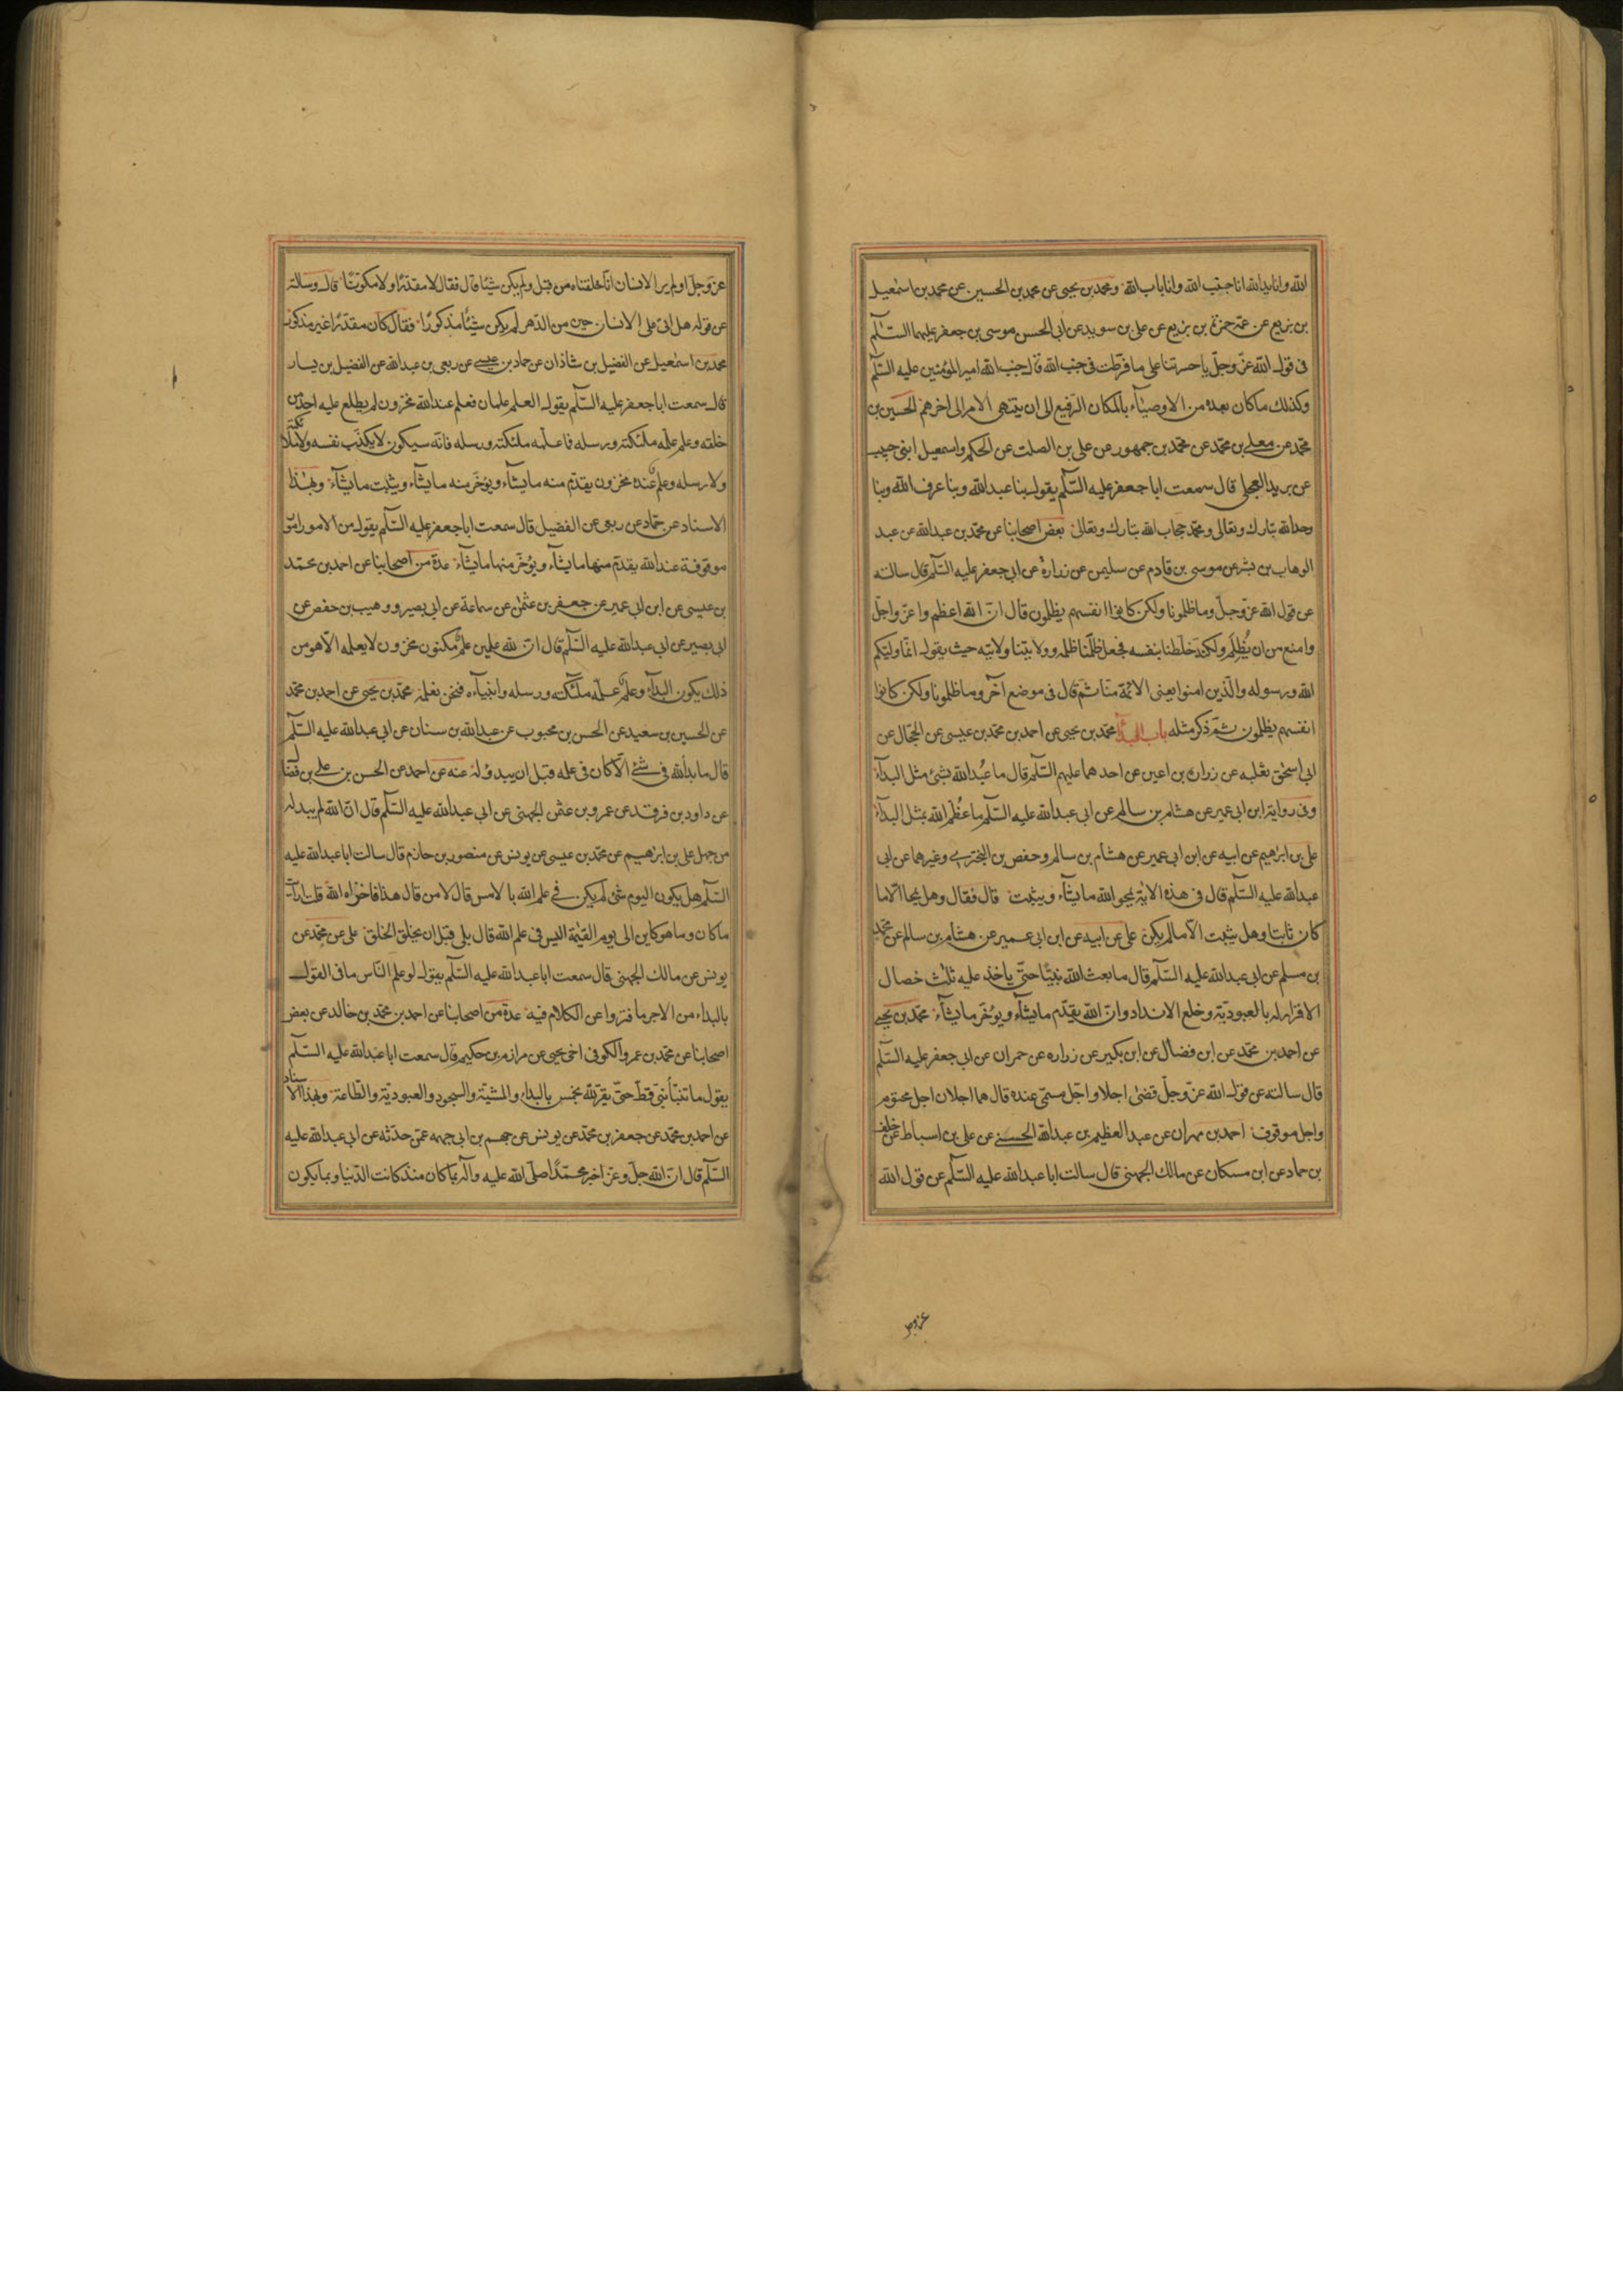 الله وانا يد الله انا جنب الله وانا باب الله ومحمد بن يحيى عن محمد بن الحسين عن محمد بن اسمعيل
بن بزيع عن عمه حمزة بن بزيع عن علي بن سويد عن ابى الحسن موسى بن جعفر عليهما السّلم
فى قول الله عزّ وجلّ يا حسرتنا على ما فرّطت فى جنب الله قال جنب الله امير المؤمنين عليه السّلم
وكذلك ما كان بعده من الاوصيآء بالمكان الرّفيع الى ان ينتهى الامر الى اخرهم الحسين بن
محمّد عن معلى بن محمّد عن محمّد بن جمهور عن على بن الصلت عن الحكم واسمعيل ابنى حبيب
عن بريد العجلى قال سمعت ابا جعفر عليه السّلم يقول بنا عبد الله وبنا عرف الله وبنا
وحد الله تبارك وتعالى ومحمّد حجاب الله تبارك وتعالى بعض اصحابنا عن محمّد بن عبدالله عن عبد
الوهاب بن بشر عن موسى بن قادم عن سليمن عن زرارة عن ابى جعفر عليه السّلم قال سالته
عن قول الله عزّ وجلّ وما ظلمونا ولكن كانوا انفسهم يظلمون قال انّ الله اعظم واعزّ واجلّ
وامنع من ان يُظلم ولكنّه خلطنا بنفسه فجعل ظلمنا ظلمه وولايتنا ولايته حيث يقول انّما وليّكم
الله ورسوله والّذين امنوا يعنى الائمّة منّا ثمّ قال فى موضع آخر وما ظلمونا ولكن كانوا
انفسهم يظلمون ثمّ ذكر مثله باب البدآ محمّد بن يحيى عن احمد بن محمّد بن عيسى عن الحجّال عن
ابى اسحق ثعلبه عن زراره بن اعين عن احدهما عليهم السّلم قال ما عُبد الله بشئ مثل البدآء
وفى رواية ابن ابى عمير عن هشام بن سالم عن ابى عبدالله عليه السّلم ما عُظّم الله بمثل البدآء
على بن ابرهيم عن ابيه عن ابن ابى عمير عن هشام بن سالم وحفص بن البخترى وغيرهما عن ابى
عبدالله عليه السّلم قال فى هذه الاية يمحو الله ما يشآء ويثبت قال فقال وهل يمحا الّا ما
كان ثابتا وهل يثبت الّا ما لم يكن على عن ابيه عن ابن ابى عمير عن هشام بن سالم عن محمّد
بن مسلم عن ابى عبدالله عليه السّلم قال ما بعث الله نبيّا حتّى ياخذ عليه ثلث خصال
الاقرار له بالعبوديّة وخلع الانداد وانّ الله يقدّم ما يشآء ويؤخّر ما يشآء محمّد بن يحيى
عن احمد بن محمّد عن ابن فضال عن ابن بكير عن زراره عن حمران عن ابى جعفر عليه السّلم
قال سالته عن قول الله عزّ وجلّ قضى اجلا واجل مسمّى عنده قال هما اجلان اجل محتوم
واجل موقوف احمد بن مهران عن عبد العظيم بن عبدالله الحسنى عن على بن اسباط عن خلف
بن حماد عن ابن مسكان عن مالك الجهنى قال سالت ابا عبدالله عليه السّلم عن قول الله
عزوجل
عزّ وجلّ اولم ير الانسان انّا خلقناه من قبل ولم يكن شيئا قال فقال لا مقدّرا ولا مكوّنا قال وسالته
عن قوله هل اتى على الانسان حين من الدّهر لم يكن شيئا مذكورًا فقال كان مقدّرا غير مذكور
محمّد بن اسمعيل عن الفضيل بن شاذان عن حماد بن عيسى عن ربعى بن عبدالله عن الفضيل بن يسار
قال سمعت ابا جعفر عليه السّلم يقول العلم علمان فعلم عند الله مخزون لم يطلع عليه احد من
خلقه وعلم علّمه ملئكته ورسله فما علّمه ملئكته ورسله فانّه سيكون لا يكذّب نفسه ولا ملئكته
ولا رسله وعلم عنده مخزون يقدّم منه ما يشآء ويؤخّر منه ما يشآء ويثبت ما يشآء وبهذا
الاسناد عن حمّاد عن ربعى عن الفضيل قال سمعت ابا جعفر عليه السّلم يقول من الامور امور
موقوفة عند الله يقدّم منها ما يشآء ويؤخّر منها ما يشآء عدة من اصحابنا عن احمد بن محمّد
بن عيسى عن ابن ابى عمير عن جعفر بن عثمن عن سماعة عن ابى بصير ووهيب بن حفص عن
ابى بصير عن ابى عبدالله عليه السّلم قال انّ لله علمين علم مكنون مخزون لا يعلمه الّا هو من
ذلك يكون البدآء وعلم علّمه ملئكته ورسله وانبيآءه فنحن نعلمه محمّد بن يحيى عن احمد بن محمّد
عن الحسين بن سعيد عن الحسن بن محبوب عن عبدالله بن سنان عن ابى عبدالله عليه السّلم
قال ما بدا لله فى شئ الّا كان فى علمه قبل ان يبدو له عنه عن احمد عن الحسن بن على بن فضال
عن داود بن فرقد عن عمرو بن عثمن الجهنى عن ابى عبدالله عليه السّلم قال انّ الله لم يبد له
من جهل على بن ابرهيم عن محمّد بن عيسى عن يونس عن منصور بن حازم قال سالت ابا عبدالله عليه
السّلم هل يكون اليوم شئ لم يكن فى علم الله بالامس قال لا من قال هذا فاخزاه الله قلت ارايت
ما كان وما هو كاين الى يوم القيمة اليس فى علم الله قال بلى قبل ان يخلق الخلق على عن محمّد عن
يونس عن مالك الجهنى قال سمعت ابا عبدالله عليه السّلم يقول لو علم النّاس ما فى القول
بالبداء من الاجر ما فتروا عن الكلام فيه عدة من اصحابنا عن احمد بن محمّد بن خالد عن بعض
اصحابنا عن محمّد بن عمرو الكوفى اخى يحيى عن مرازم بن حكيم قال سمعت ابا عبدالله عليه السّلم
يقول ما تنبّأ نبىّ قطّ حتّى يقرّ لله بخمس بالبداء والمشيّة والسجود والعبوديّة والطّاعة وبهذا الاسناد
عن احمد بن محمّد عن جعفر بن محمّد عن يونس عن جهم بن ابى جهمه عمّن حدّثه عن ابى عبدالله عليه
السّلم قال انّ الله جلّ وعزّ اخبر محمّدًا صلّى الله عليه وآله بما كان منذ كانت الدّنيا وبما يكون